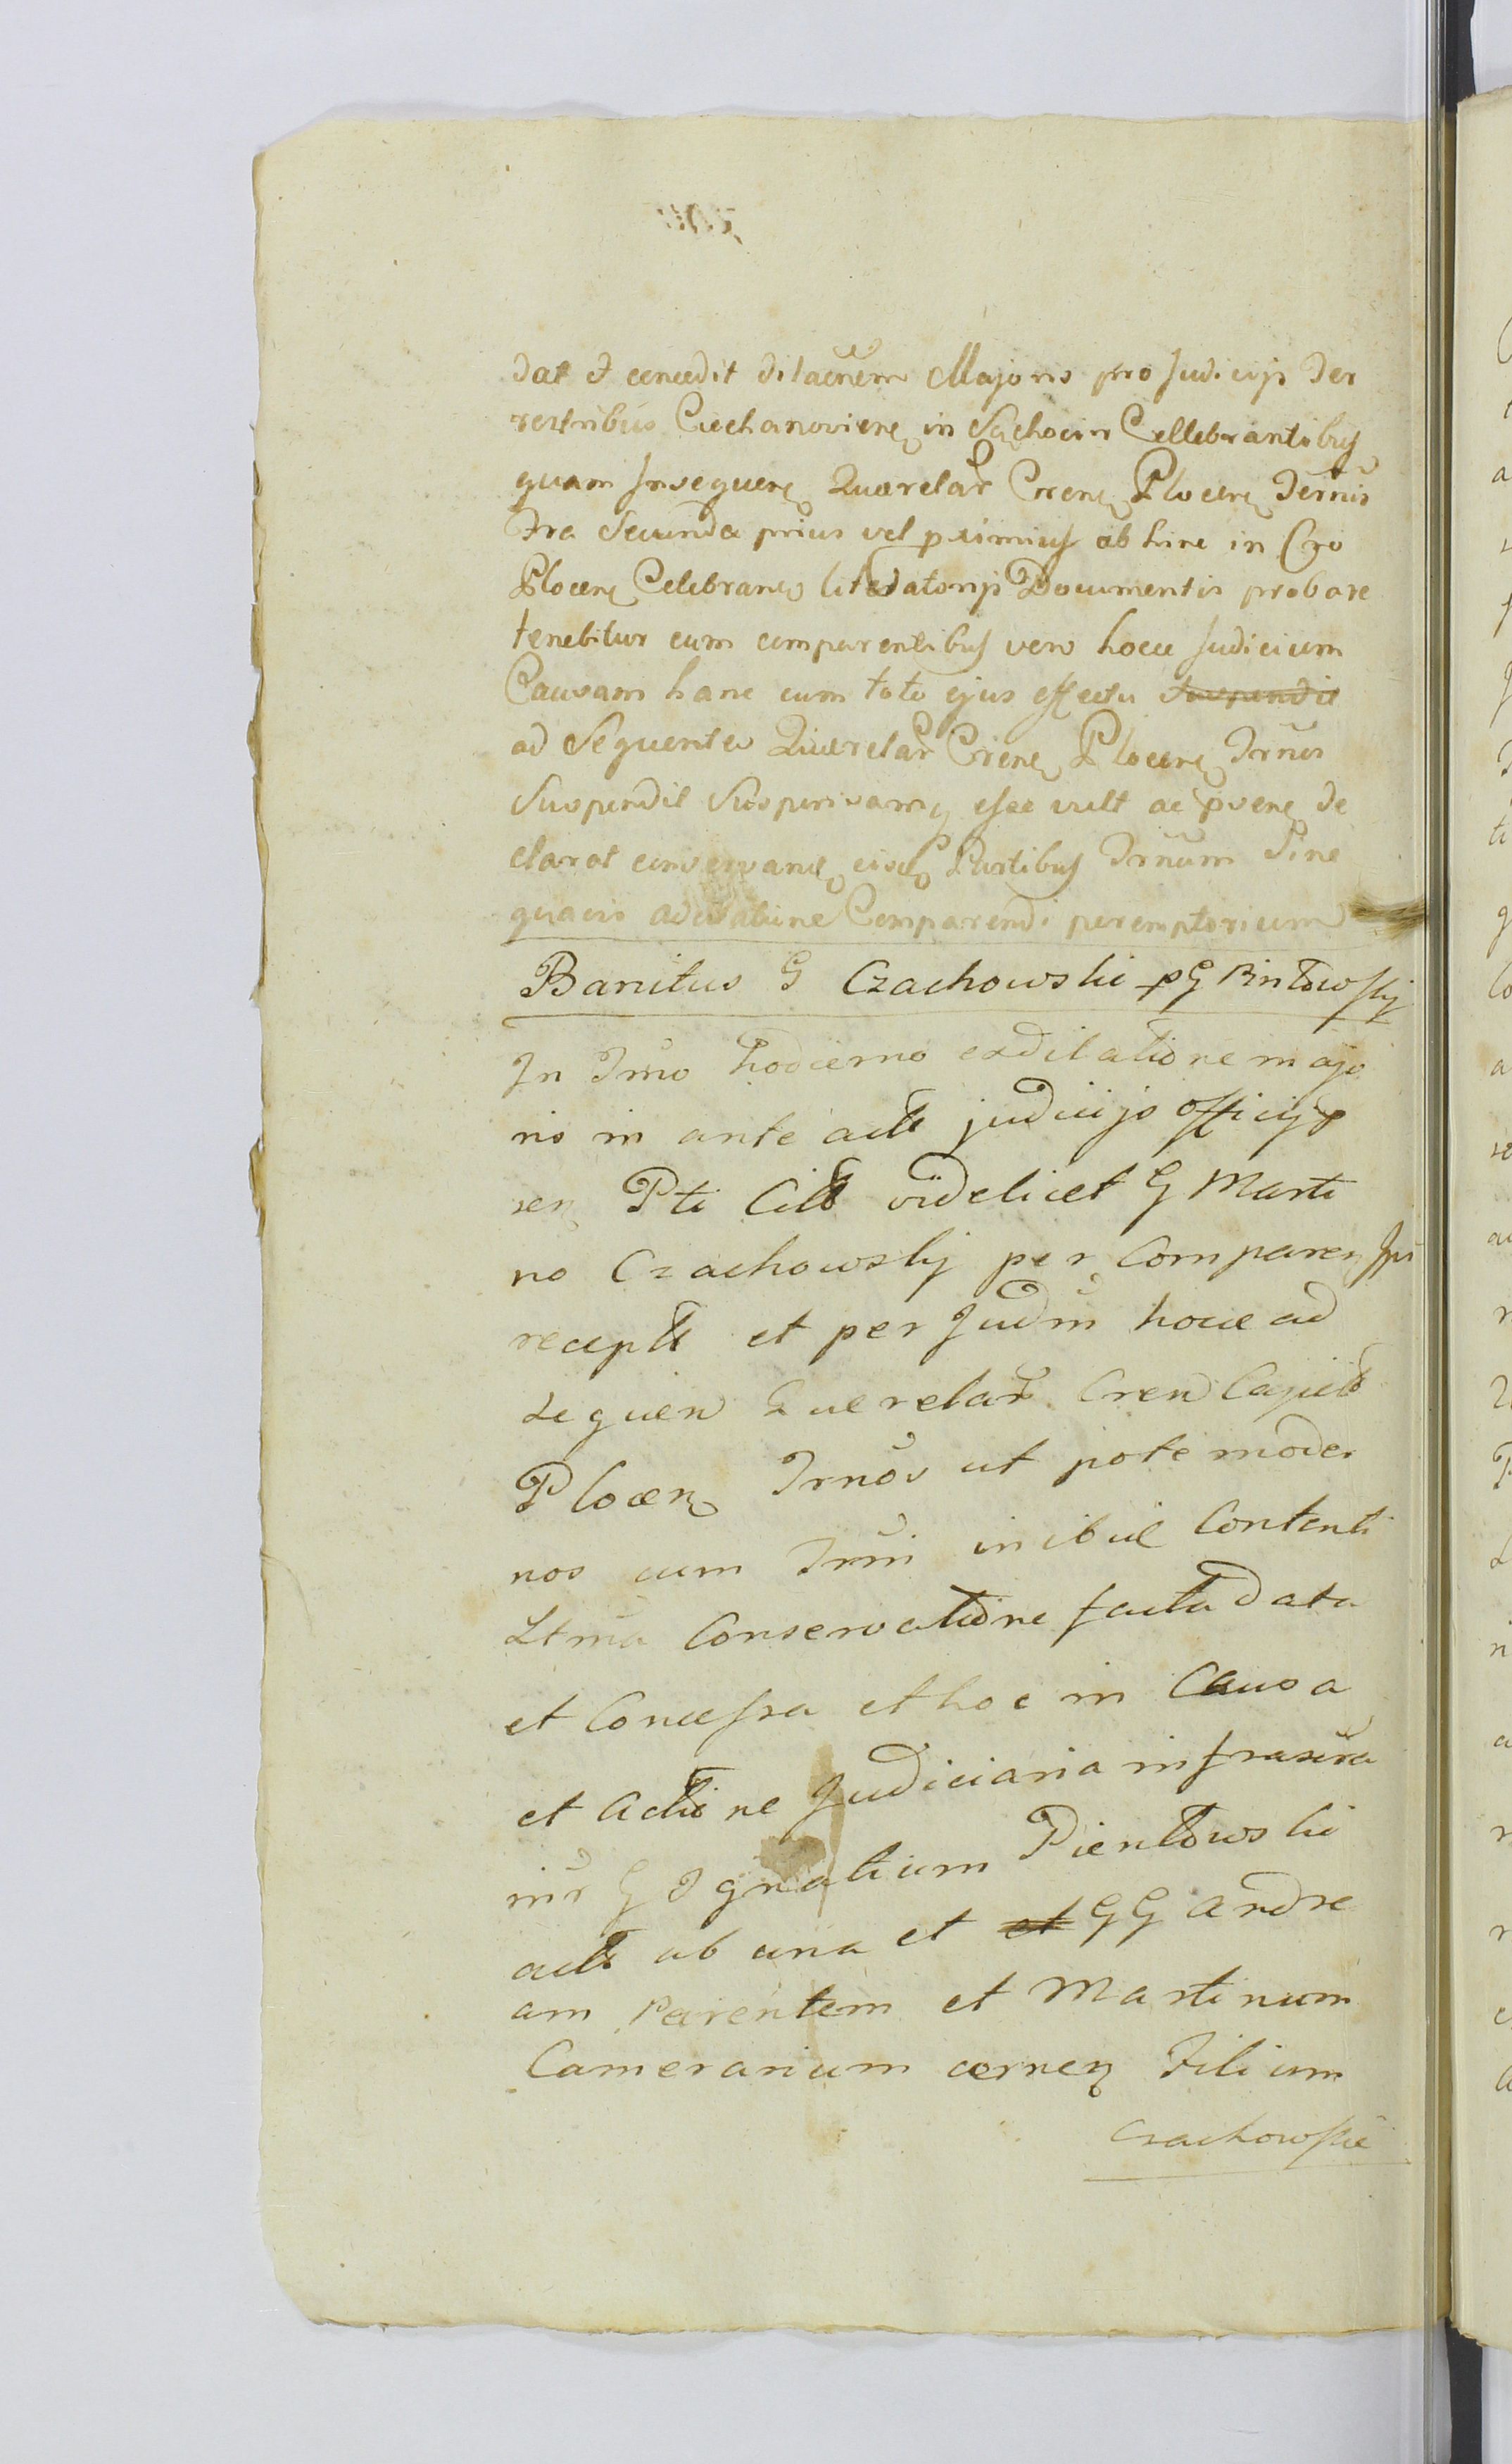 dat & concedit dilaõnem Majoris pro Judicijs Ter
restribus Ciechanoviens in Sąchocin Cellebrantibus
quam Insequens Quærelar Crens Plocens Termis
Fra Secunda prius vel proximius ab hinc in Cro
Plocens Celebrans literatorijs Documentis probare
tenebitur cum comparentibus vero hocce Judicium
Causam hanc cum toto ejus effectu Suspendit
ad Sequentes Quærelar Crens Plocens Trnos
Suspendit Suspensamq esse vult ac pvens de
clarat conservans eisd Partibus Trnum Sine
quavis adcitatione Comparendi peremptorium
Banitus G Czachowski p G Pintowskij
In Trno hodierno ex dilatione majo
ris in ante actt judicijs officij p
sen Pti Citt videlicet G Marti
no Czachowskij per Comparen Jpi
receptt et per Judm hocce ad
sequen Querelar Cren Capitt
Plocen Trnos ut pote moder
nos cum Trni inibid Contenti
Ltma Conservatione facta data
et Concessa et hoc in Causa
et Actione Judiciaria infrascra
intr G Ignatium Pientowski
actt ab una et et GG Andre
am Parentem et Martinum
Camerarium cernen Filium
Czachowskie